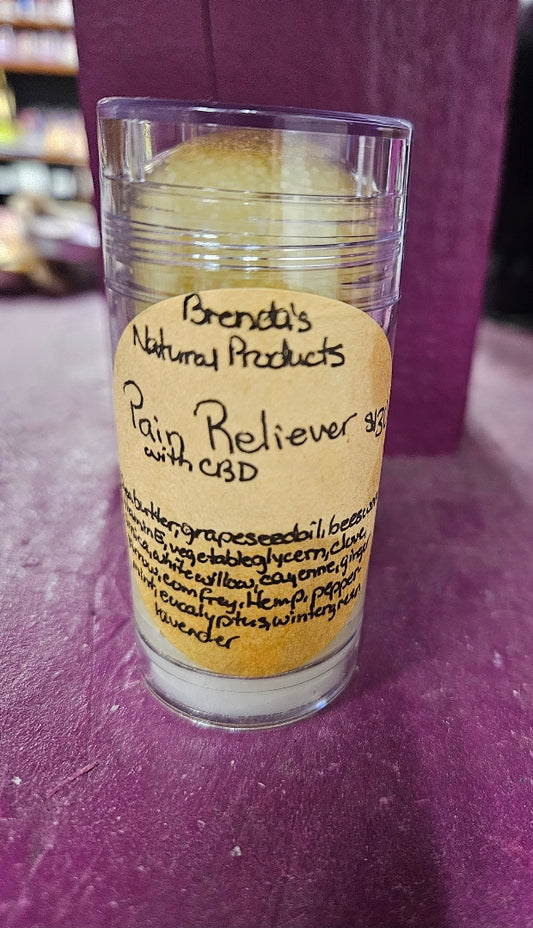 Brenda's
Natural Products
Pain Reliever
with CBD
butter, grapeseedoil, beeswax
vegetableglycern, clove,
white willow, cayenne, ginger
comfrey, Hemp, pepper-
mint, eucalyptus, wintergreen
lavender